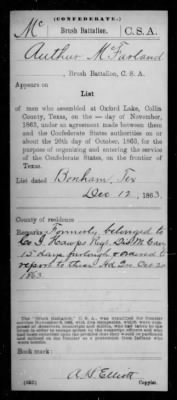 (CONFEDERATE.)
Mc Brush Battalion. C.S.A.
Arthur McFarland
, Brush Battalion, C. S. A.
Appears on
List
of men who assembled at Oxford Lake, Collin
County, Texas, on the — day of November,
1863, under an agreement made between them
and the Confederate States authorities on or
about the 26th day of October, 1863, for the
purpose of organizing and entering the service
of the Confederate States, on the frontier of
Texas.
List dated Bonham, Tex
Dec 12, 1863.
County of residence
Remarks: Formerly belonged to
Co I. Regt
15 days furlough & ordered to
report to these Hd Qrs Dec 20
1863.
Book mark:
A. S. Elliott
Copyist.